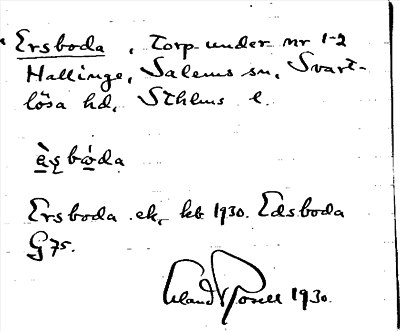 Ersboda, Torp under nr 1-2
Hallinge, Salems sn, Svart-
lösa hd, Sthlms l.
Ersboda ek, kb 1930. Edsboda
G 75.
Erland Rosell 1930.